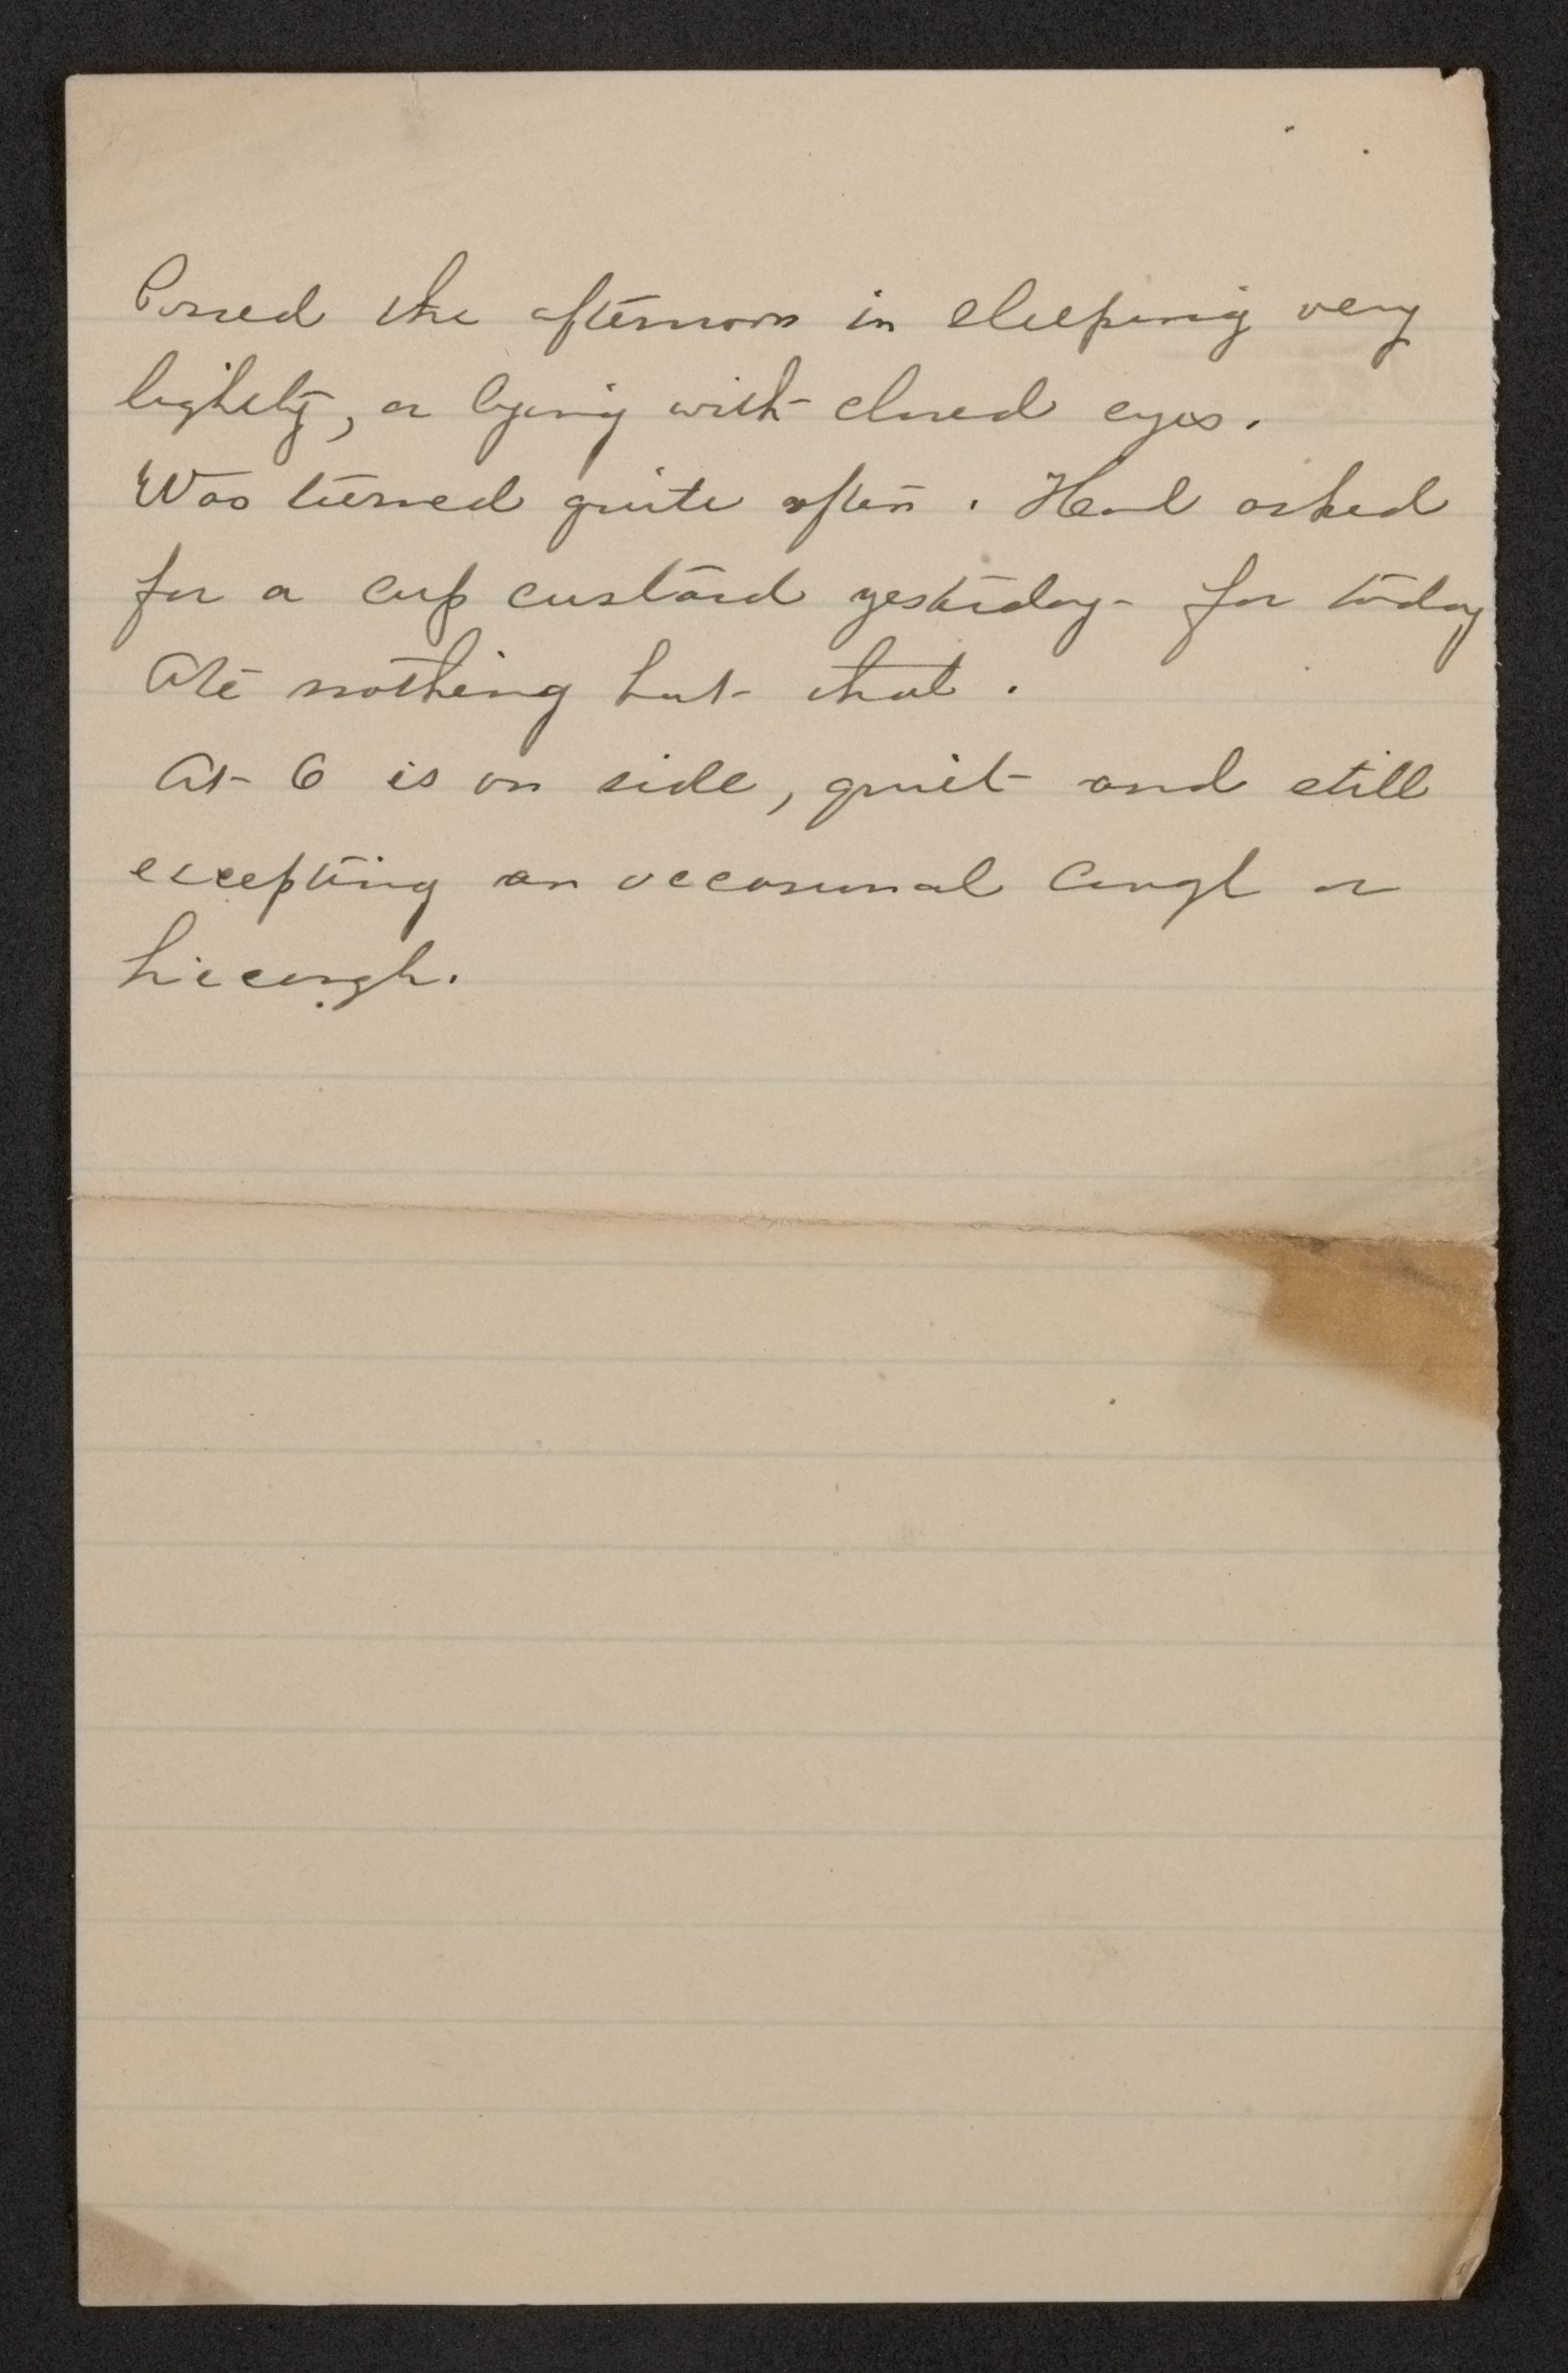 Passed the afternoon in sleeping very
lightly, or lying with closed eyes.
Was turned quite often. Had asked
for a cup custard yesterday - for today
Ate nothing but that.
At 6 is on side, quiet and still
excepting an occasional cough or
hiccough.